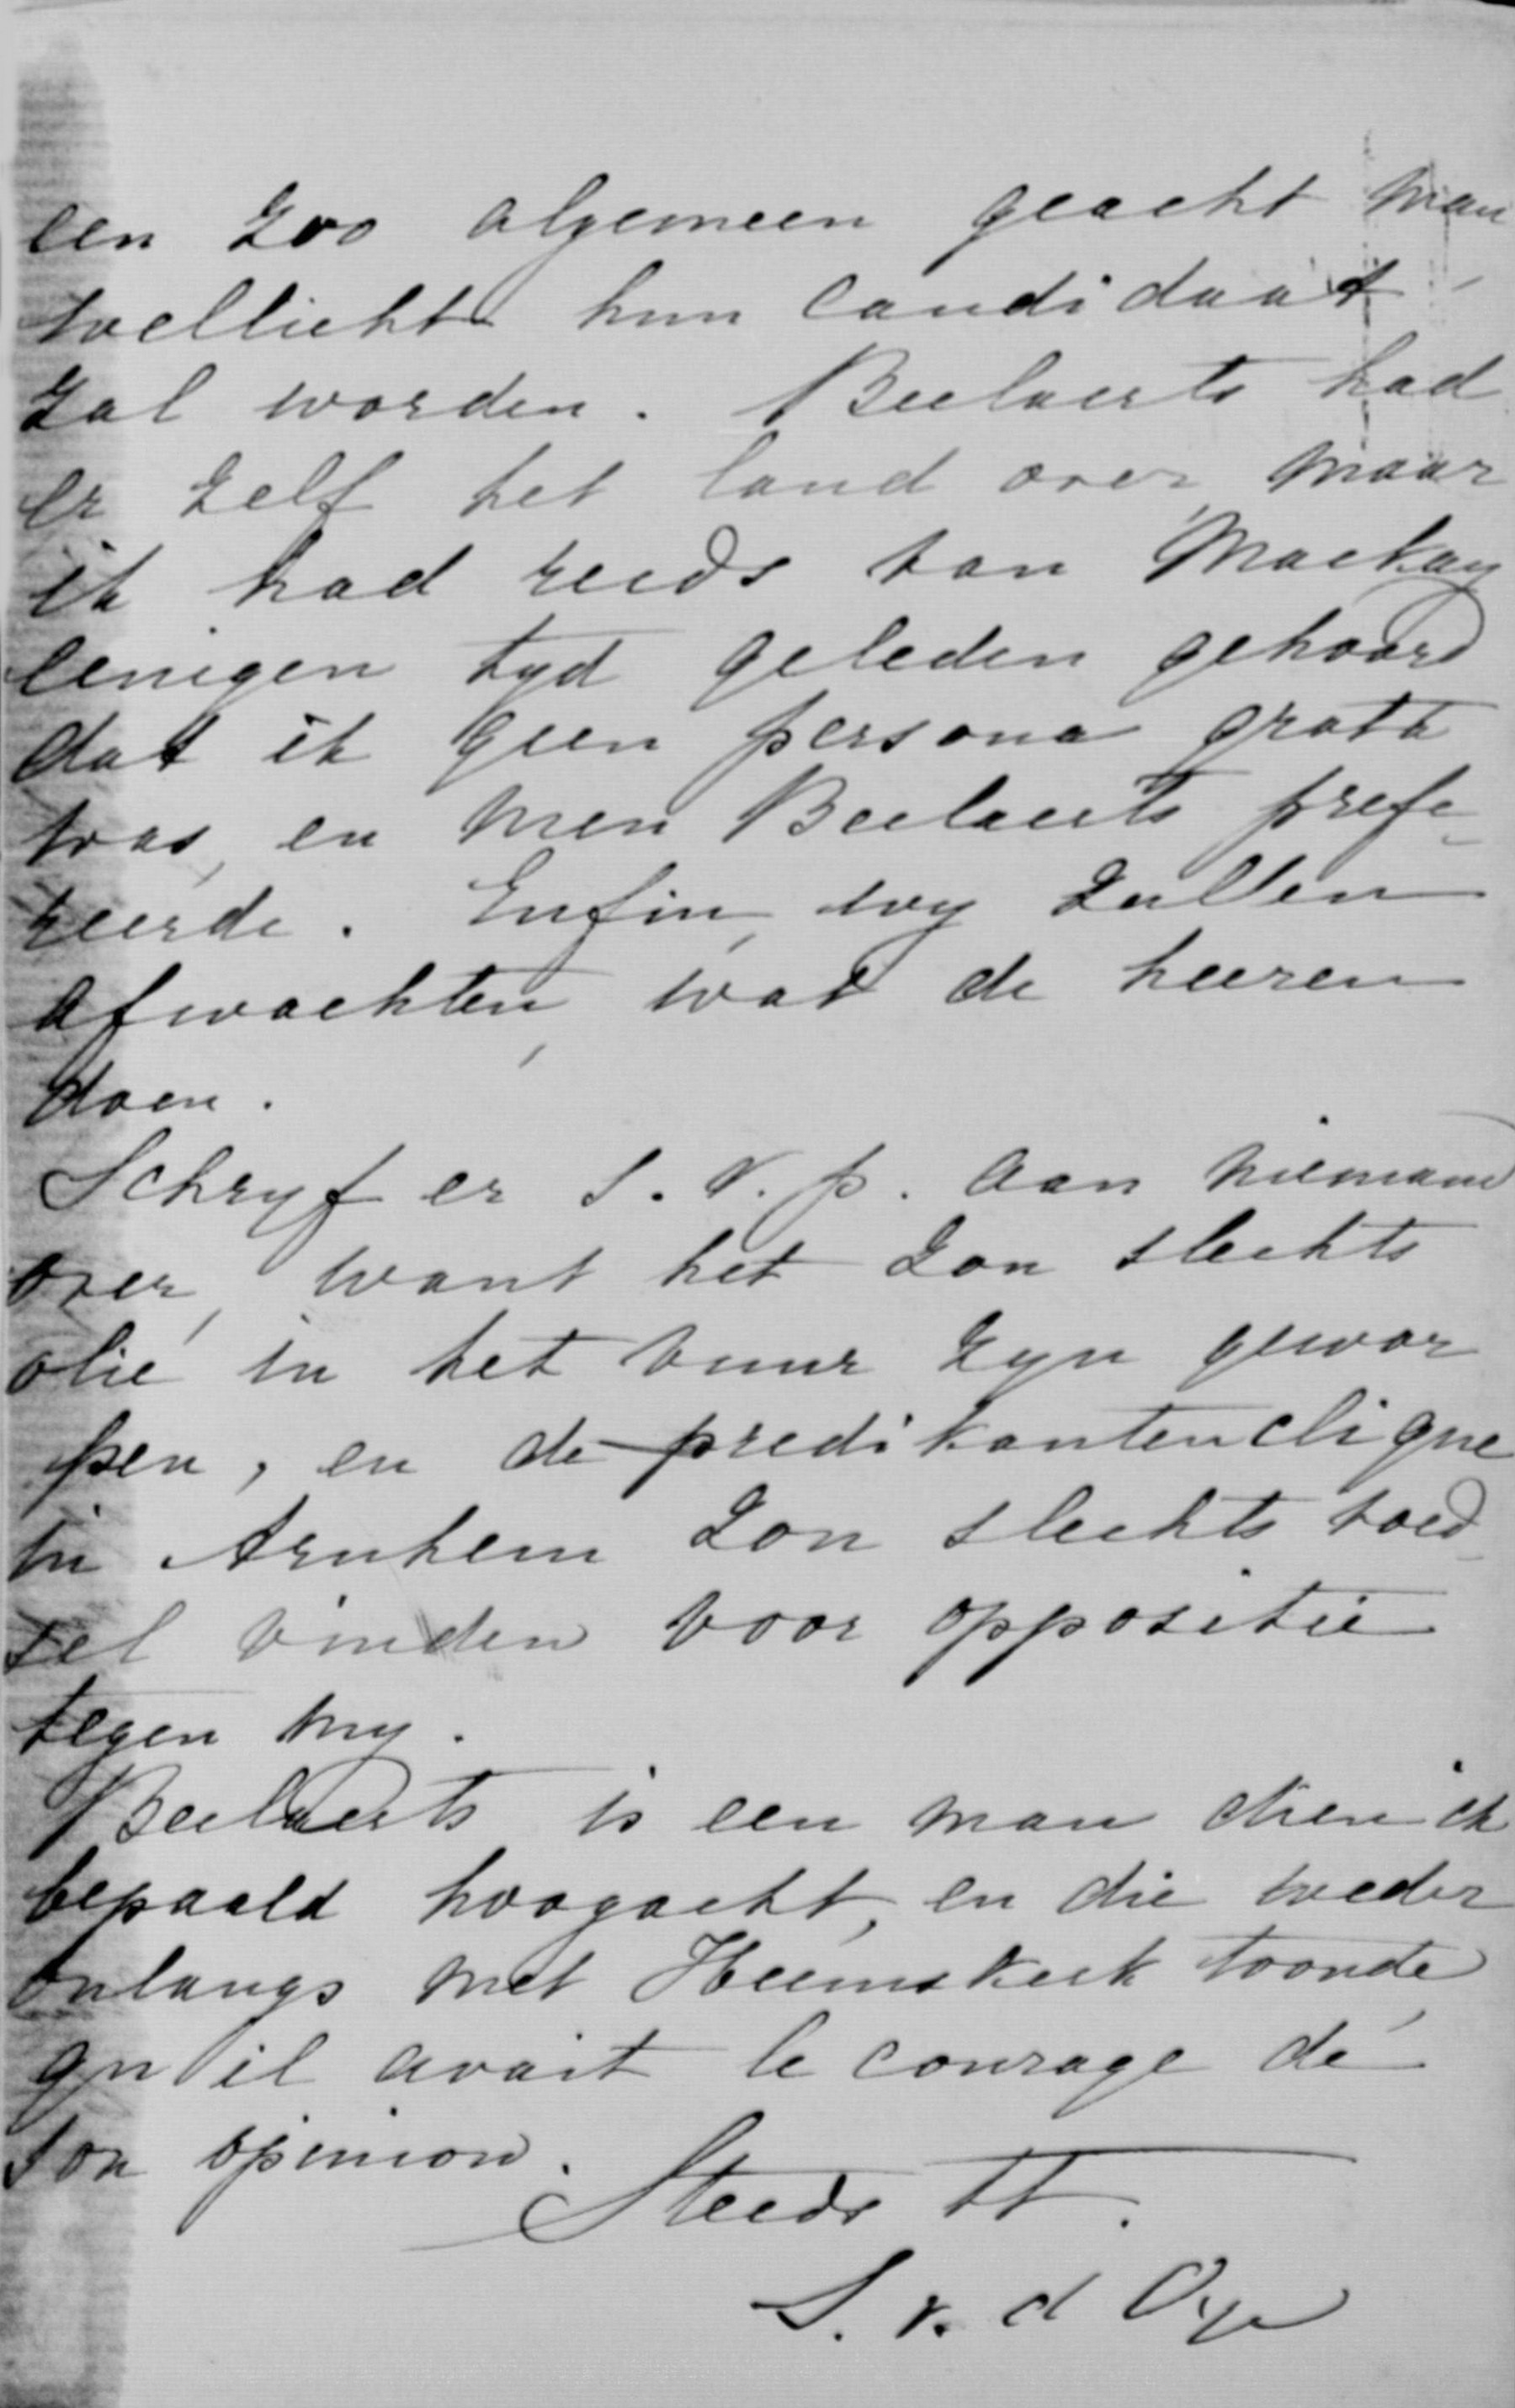 een zoo algemeen geacht man
wellicht hun candidaat
zal worden. Beelaerts had
er zelf het land over, maar
ik had reeds van Mackay
eenigen tyd geleden gehoord
dat ik geen persona grata
was, en men Beelaerts prefe-
reerde. Enfin, wy zullen
afwachten, wat de heeren
doen.
Schryf er s.v.p. aan niemand
over, want het zou slechts
olie in het vuur zyn gewor
pen, en de predikantenclique
in Arnhem zou slechts voed-
sel vinden voor oppositie
tegen my.
Beelaerts is een man dien ik
bepaald hoogacht, en die weder
onlangs met Heemskerk toonde
qu'il avait le courage de
son opinion.
Steeds tt.
S. v. d Oye